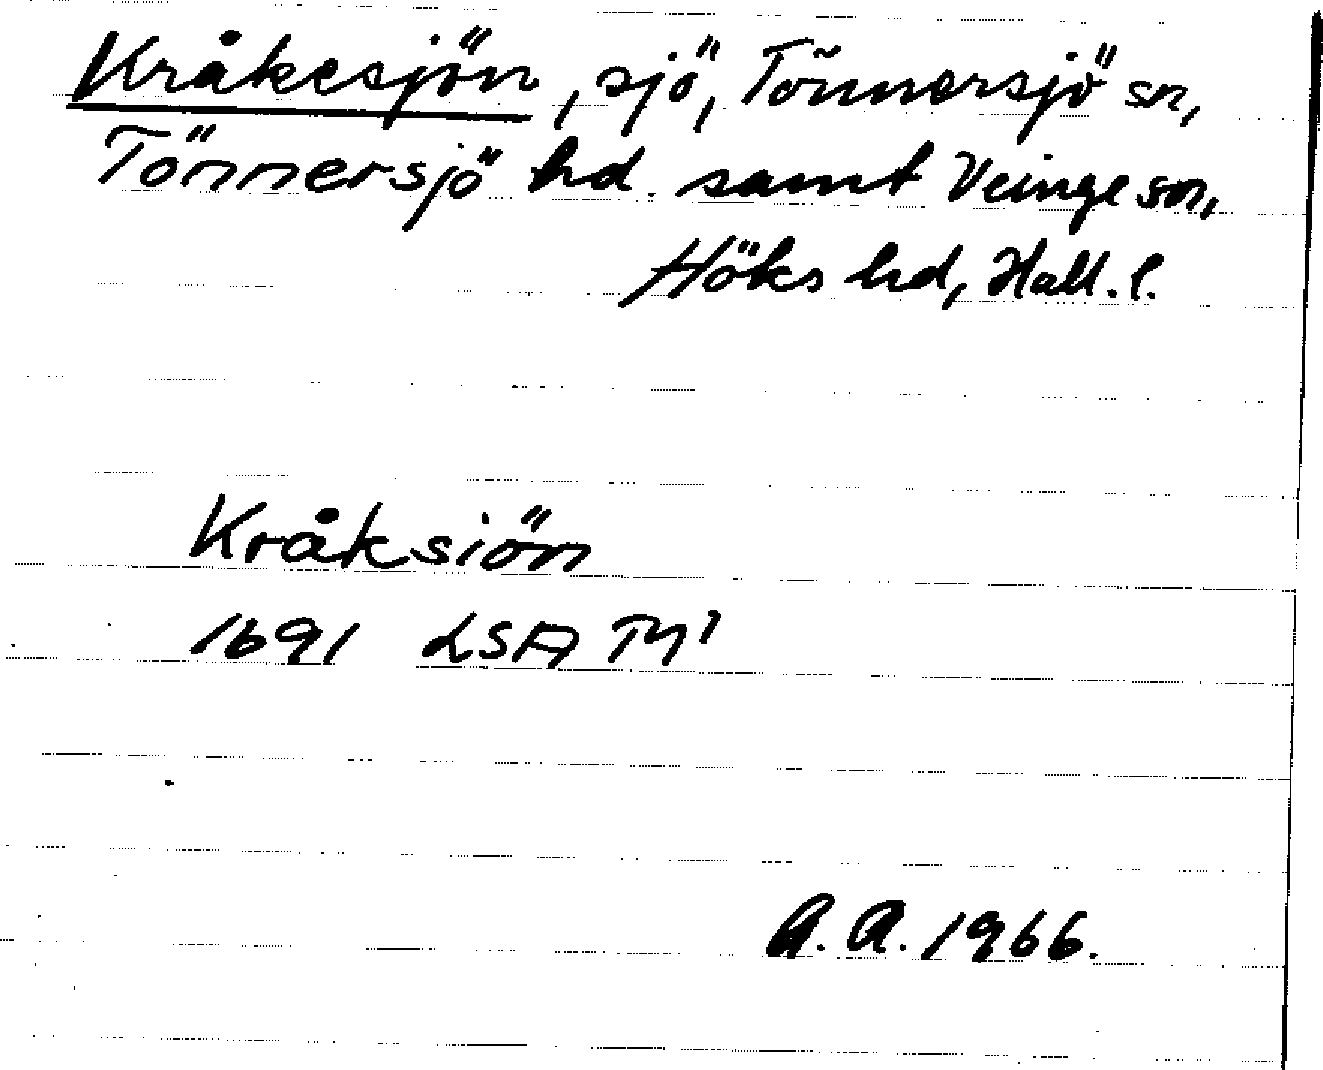 Kråkesjön, sjö, Tönnersjö sn,
Tönnersjö hd. samt Veinge sn,
Höks hd, Hall. l.
Kråksiön
1691 LSA TY¹
A.A. 1966.